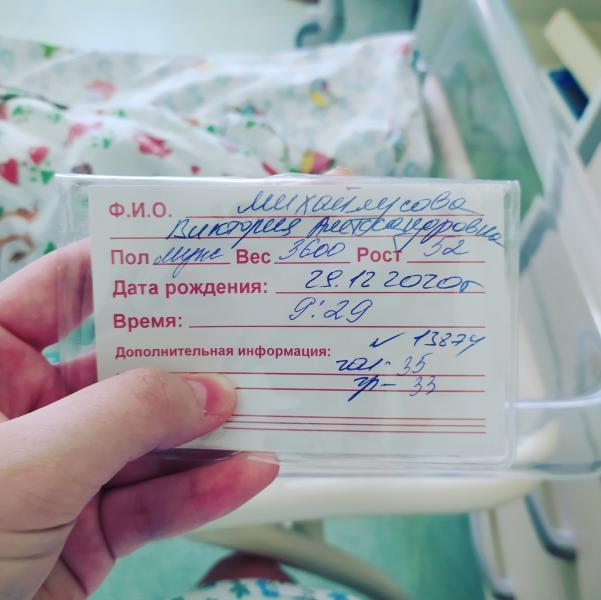 Ф.И.О. Михайлусова
Виктория Александровна
Пол муж Вес 3600 Рост 52
Дата рождения: 29.12 2020г
Время: 9:29
Дополнительная информация: N 13874
гол - 35
гр - 33